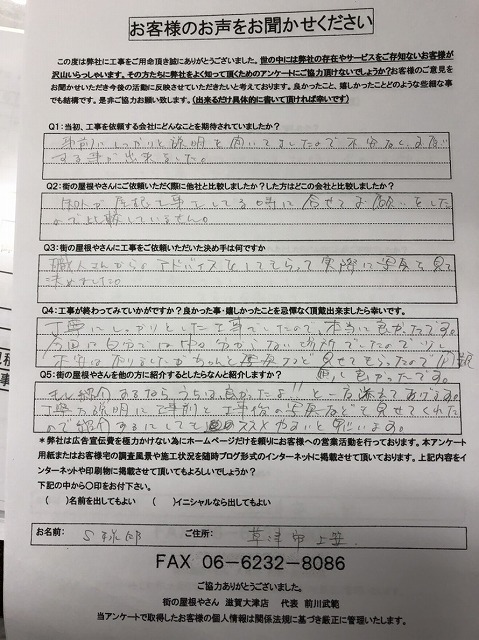 お客様のお声をお聞かせください
この度は弊社に工事をご用命頂き誠にありがとうございました。世の中には弊社の存在やサービスをご存知ないお客様が
沢山いらっしゃいます。その方たちに弊社をよく知って頂くためのアンケートにご協力頂けないでしょうか？お客様のご意見を
お聞かせいただき今後の活動に反映させていただきたいと考えております。良かったこと、嬉しかったことどのような些細な事
でも結構です。是非ご協力お願い致します。（出来るだけ具体的に書いて頂ければ幸いです）
Q1:当初、工事を依頼する会社にどんなことを期待されていましたか？
事前にしっかりと説明を聞いてましたので不安なくお願い
する事が出来ました。
Q2:街の屋根やさんにご依頼いただく際に他社と比較しましたか？した方はどこの会社と比較しましたか？
屋根工事をしている時に合せてお願いをした
ので比較していません。
Q3:街の屋根やさんに工事をご依頼いただいた決め手は何ですか
職人さんからのアドバイスをしてもらって実際に写真を見て
決めました。
Q4:工事が終わってみていかがですか？良かった事・嬉しかったことを忌憚なく頂戴出来ましたら幸いです。
丁寧にしっかりとした工事でしたので、本当に良かったです。
今回は自分では中々分からない場所でしたので少し
不安はありましたがちゃんと写真などを見せてもらったので
良かったです。
Q5:街の屋根やさんを他の方に紹介するとしたらなんと紹介しますか？
もし紹介するなら、うちは良かったよ!!と一言添えてあげます。
丁寧な説明に工事前と工事後の写真などを見せてくれた
ので紹介するにしてもススメやすいと思います。
＊弊社は広告宣伝費を極力かけない為にホームページだけを頼りにお客様への営業活動を行っております。本アンケート
用紙またはお客様宅の調査風景や施工状況を随時ブログ形式のインターネットに掲載させて頂いております。上記内容をイ
ンターネットや印刷物に掲載させて頂いてもよろしいでしょうか？
下記の中から〇印をお付け下さい。
（　）名前を出してもよい　（　）イニシャルなら出してもよい
お名前： S様邸　ご住所： 草津市上笠
FAX 06-6232-8086
ご協力ありがとうございました。
街の屋根やさん 滋賀大津店　代表 前川武範
当アンケートで取得したお客様の個人情報は関係法規に基づき厳正に管理いたします。